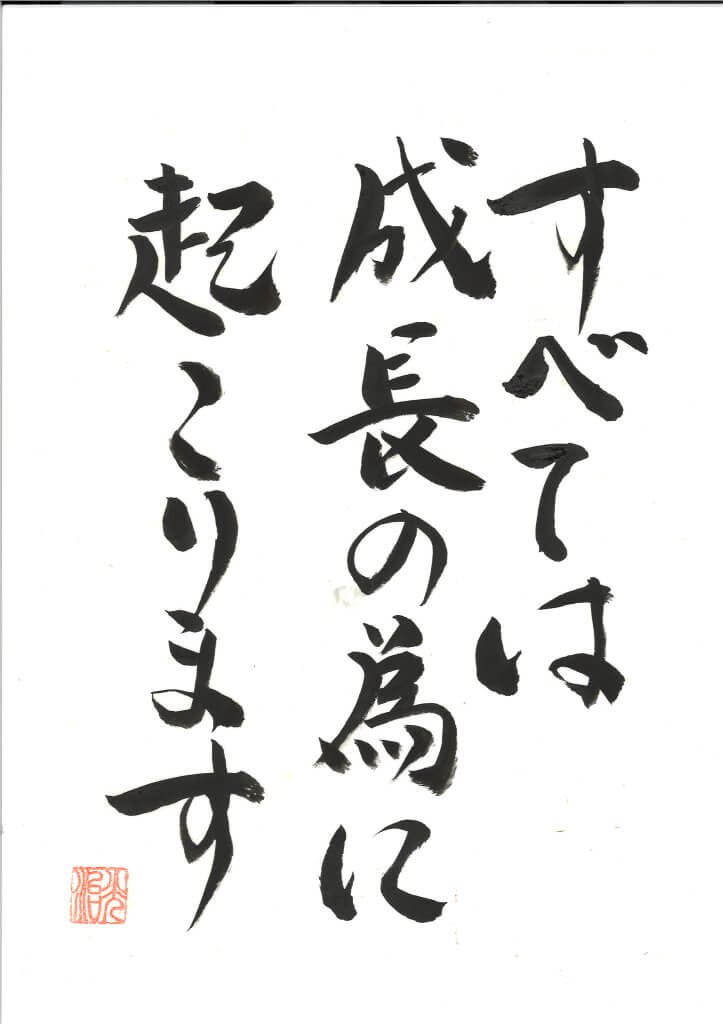 すべては
成長の為に
起こります